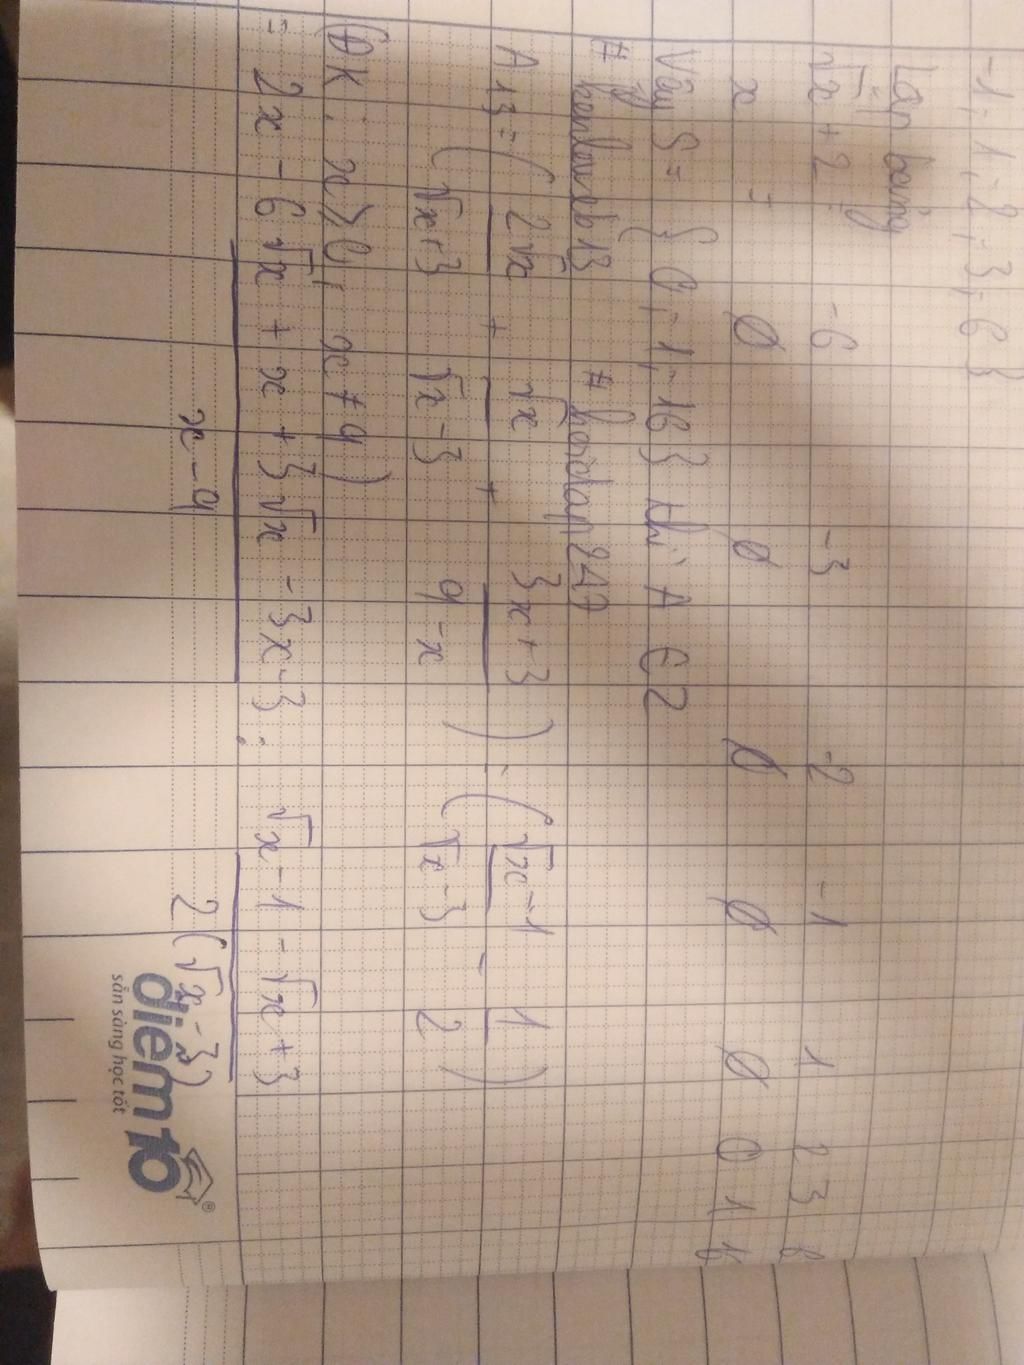 -1; 1; -2; -3; -6}
Lập bảng
√x + 2 -6 -3 -2 -1 1 2 3 6
x ∅ ∅ ∅ ∅ ∅ 0 1 16
Vậy S = { 0; 1; 16} thì A ∈ Z
# hoidap247
A13 = ( 2√x / √x+3 + √x / √x-3 + 3x+3 / 9-x ) : ( √x-1 / √x-3 - 1 / 2 )
(ĐK: x ≥ 0, x ≠ 9)
= 2x - 6√x + x + 3√x - 3x-3 / x-9 : √x-1 - √x+3 / 2(√x-3)
điểm10
sẵn sàng học tốt